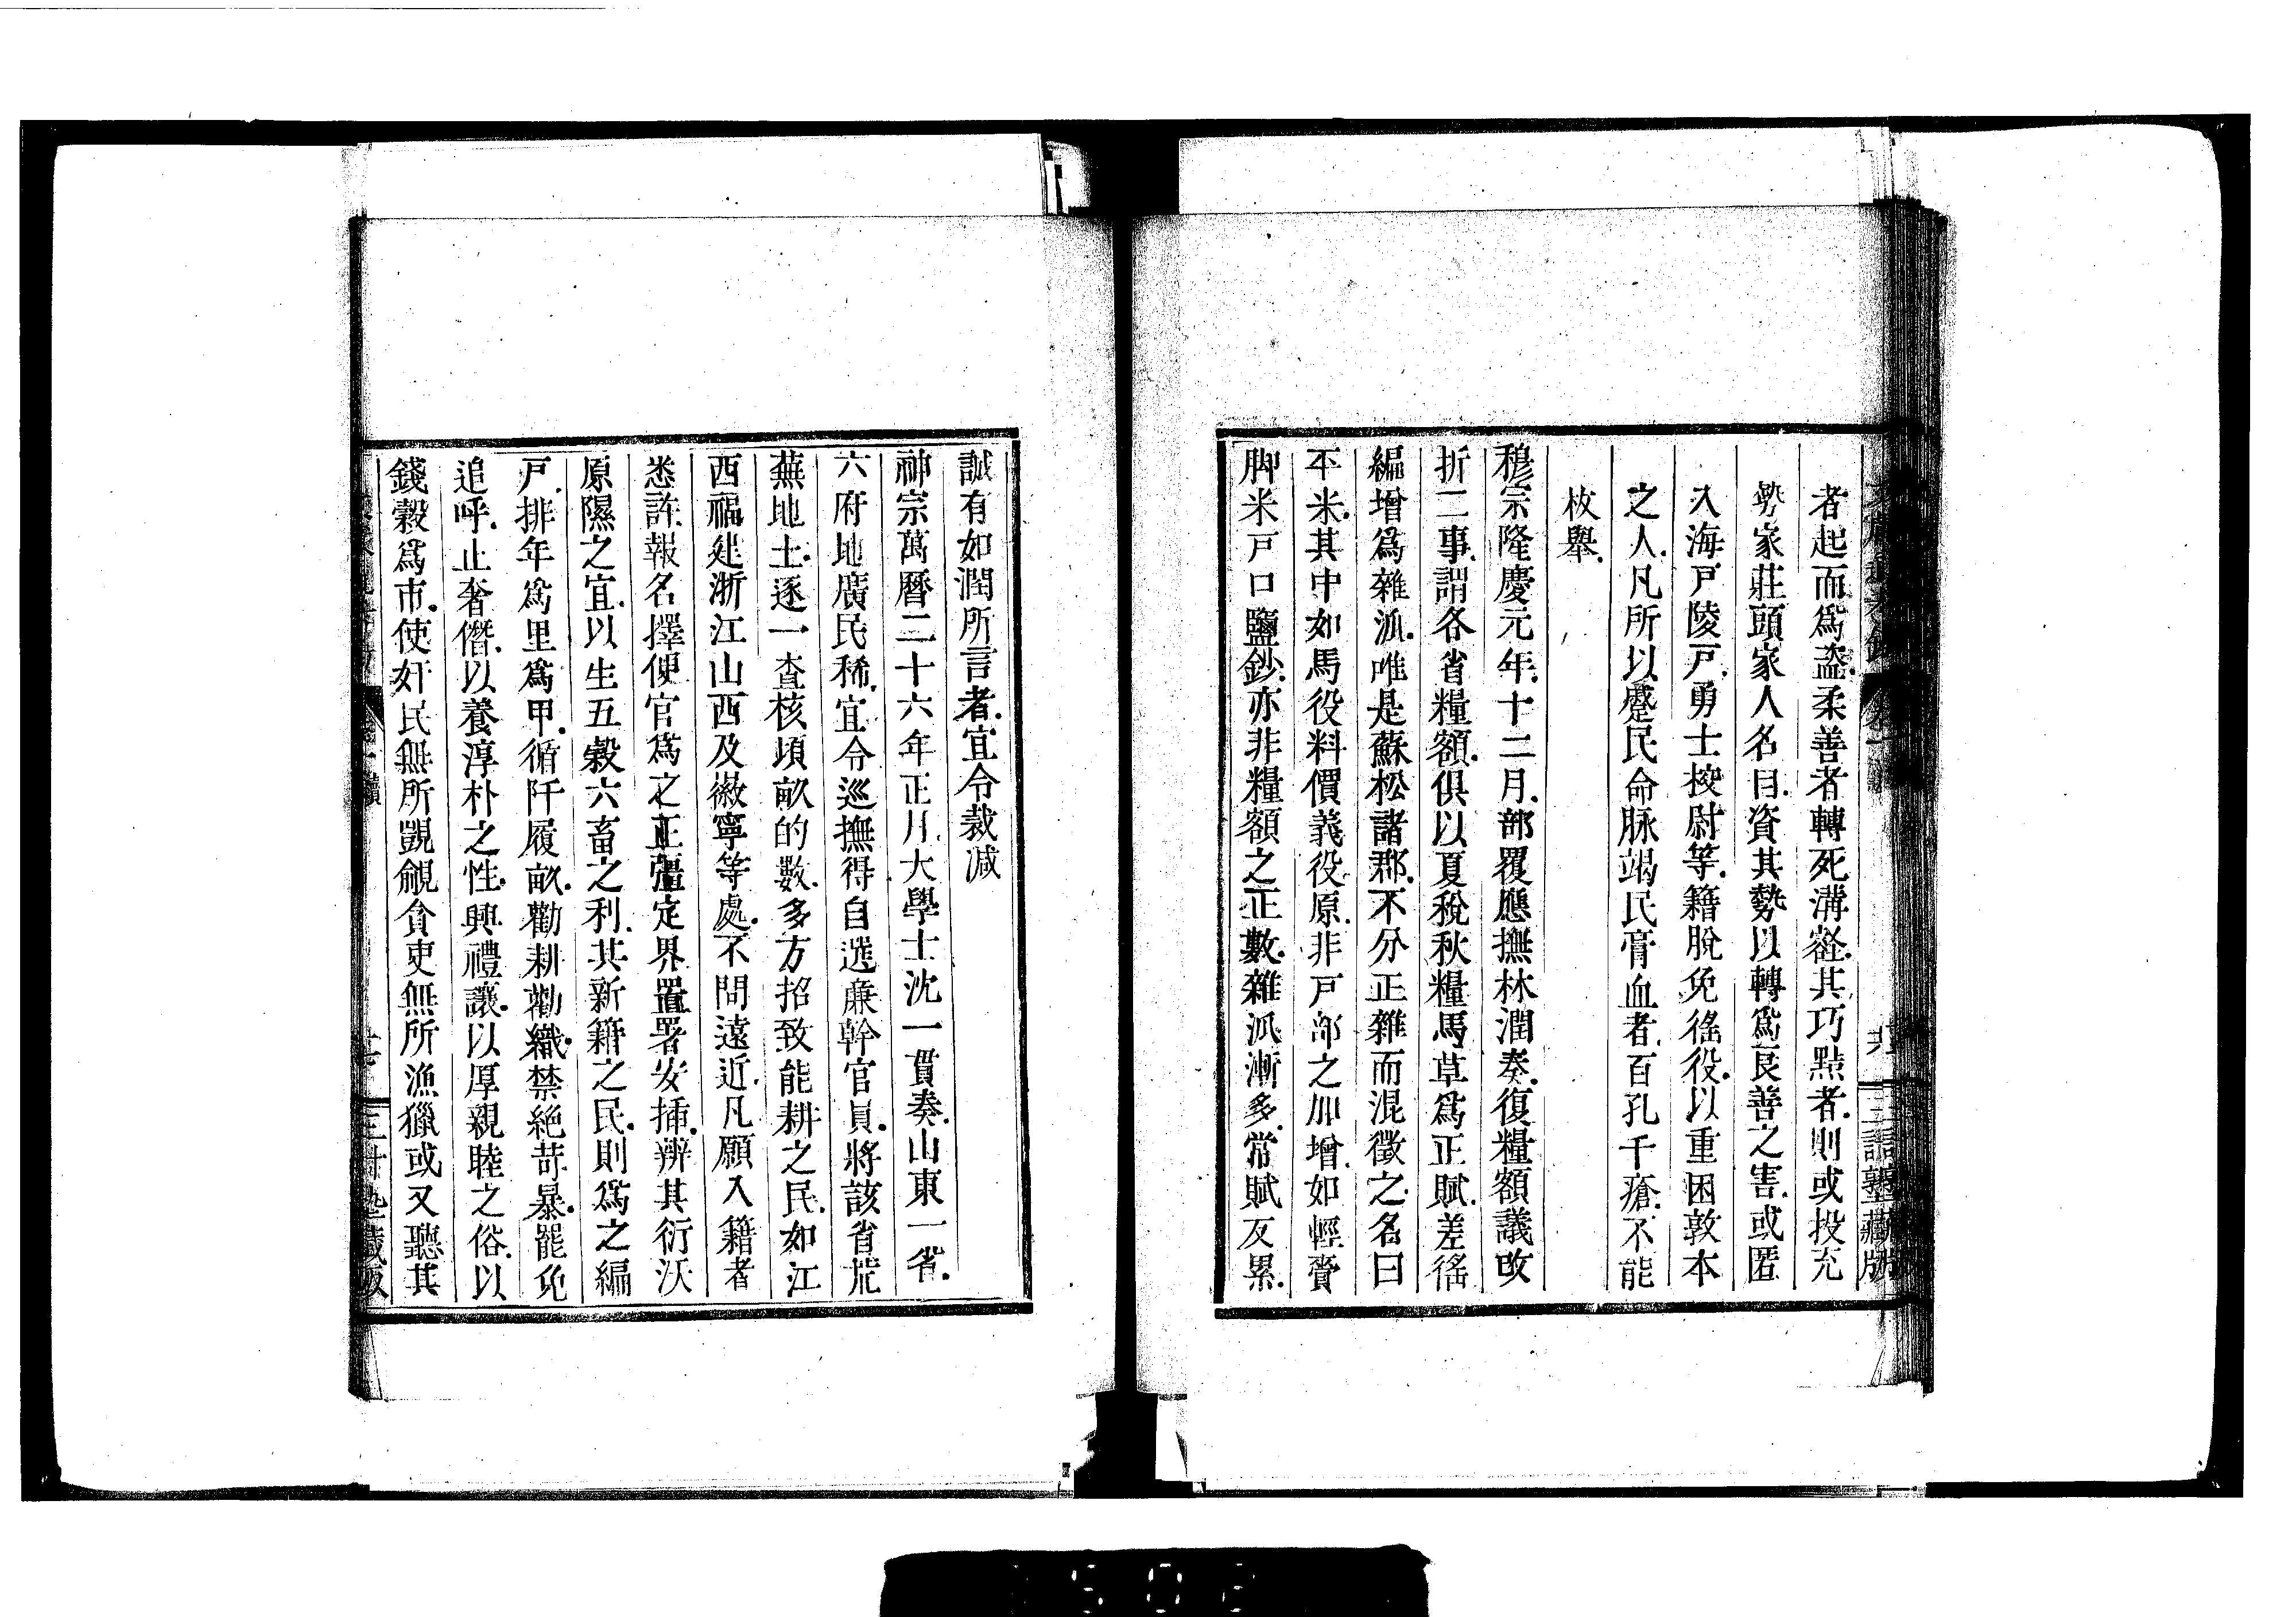 者起而爲盜柔善者轉死溝壑其巧黠者則或投充
勢家莊頭家人名目資其勢以轉爲良善之害或匿
入海戸陵戸勇士校尉等籍脫免徭役以重困敦本
之人凡所以蹙民命脉竭民膏血者百孔千瘡不能
枚舉
穆宗隆慶元年十二月部覆應撫林潤奏復糧額議改
折二事謂各省糧額俱以夏稅秋糧馬草爲正賦差徭
編增爲雜派唯是蘇松諸郡不分正雜而混徵之名曰
平米其中如馬役料價義役原非戸部之加增如輕賫
脚米戸口鹽鈔亦非糧額之正數雜派漸多常賦反累
三語塾藏版
誠有如潤所言者宜令裁減
神宗萬曆二十六年正月大學士沈一貫奏山東一省
六府地廣民稀宜令巡撫得自選亷幹官員將該省荒
蕪地土逐一查核頃畝的數多方招致能耕之民如江
西福建浙江山西及徽寧等處不問遠近凡願入籍者
悉許報名擇便官爲之正疆定界置署安插辨其衍沃
原隰之宜以生五榖六畜之利其新籍之民則爲之編
戸排年爲里爲甲循阡履畝勸耕勸織禁絕苛暴罷免
追呼止奢僭以養淳朴之性興禮讓以厚親睦之俗以
錢榖爲市使奸民無所覬覦貪吏無所漁獵或又聽其